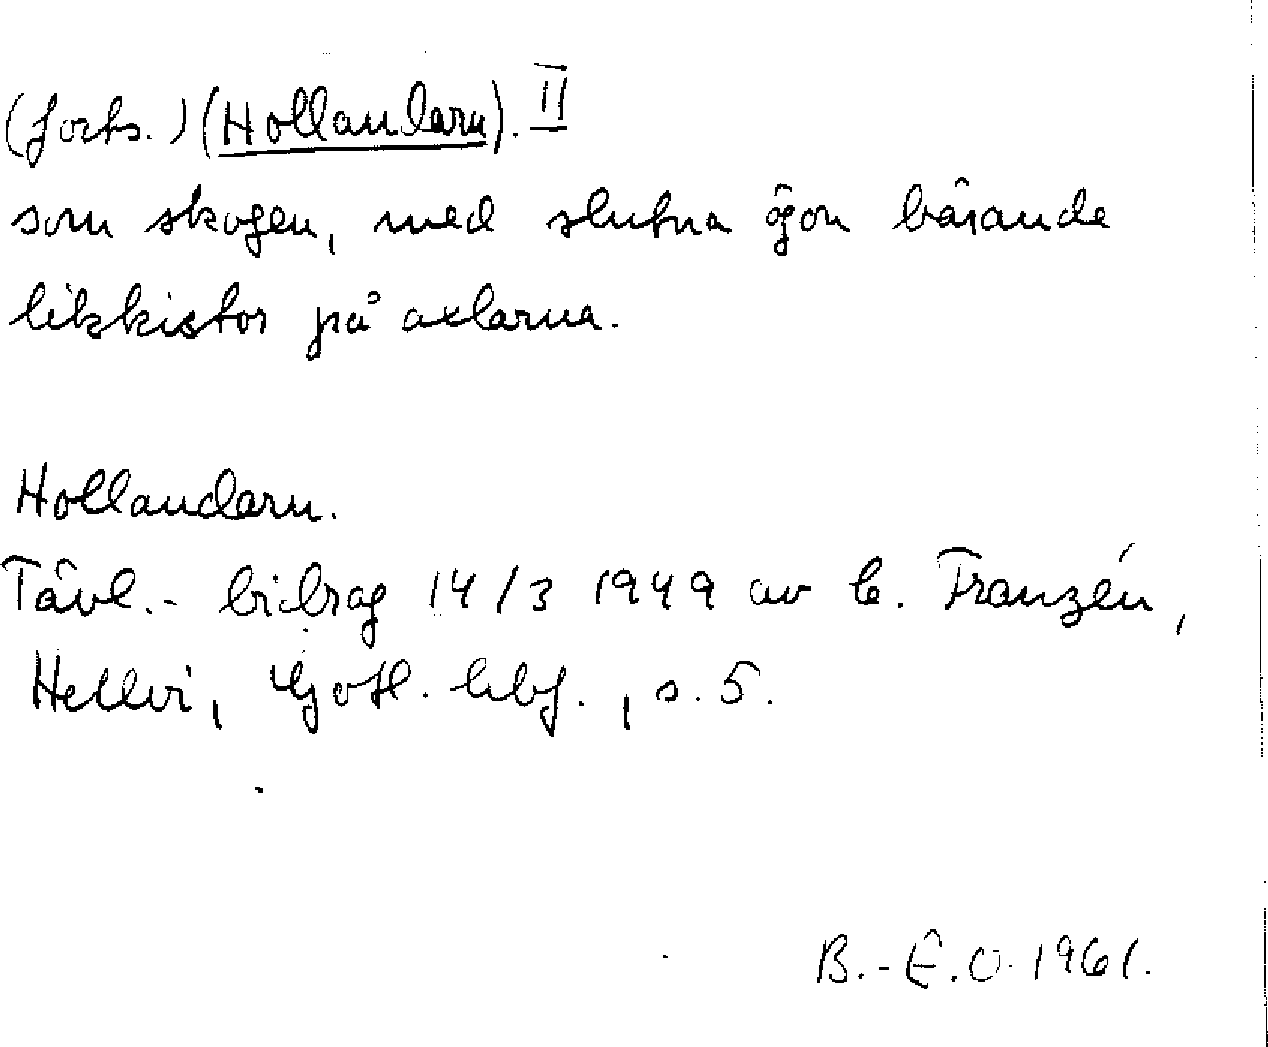 (forts.) (Hollandarn). II
som skogen, med slutna ögon bärande
likkistor på axlarna.
Hollandarn.
Tävl.- bidrag 14/3 1949 av C. Franzén,
Hellvi, Gotl. hbf., s. 5.
B.-E.O. 1961.